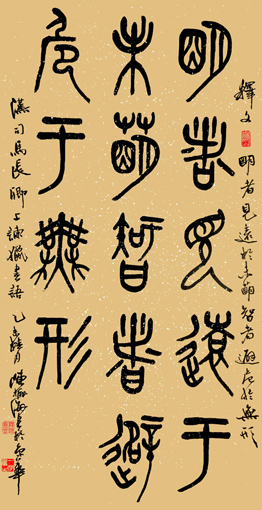 釋文 明者見遠於未萌智者避危於無形
明者見遠于
未萌智者避
危于無形
漢司馬長卿上諫獵書語